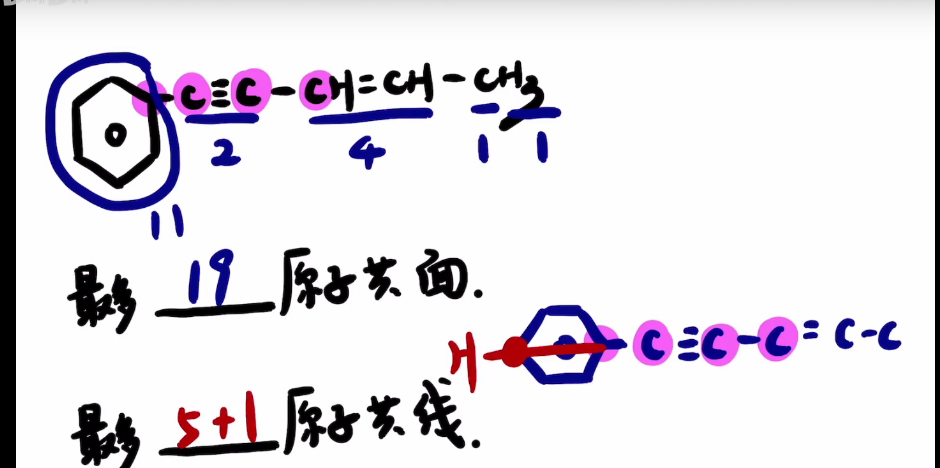 C≡C-CH=CH-CH3
2 4 1 1
11
最多 19 原子共面.
H C≡C-C=C-C
最多 5+1 原子共线.